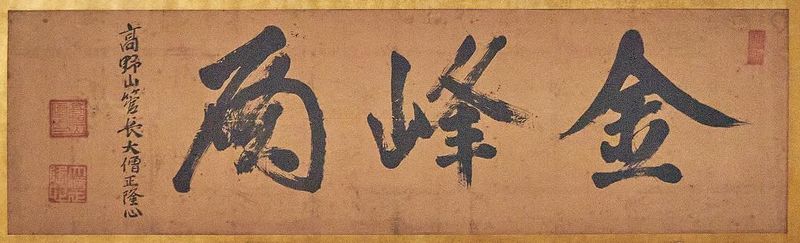 金峰
高野山管長大僧正隆心